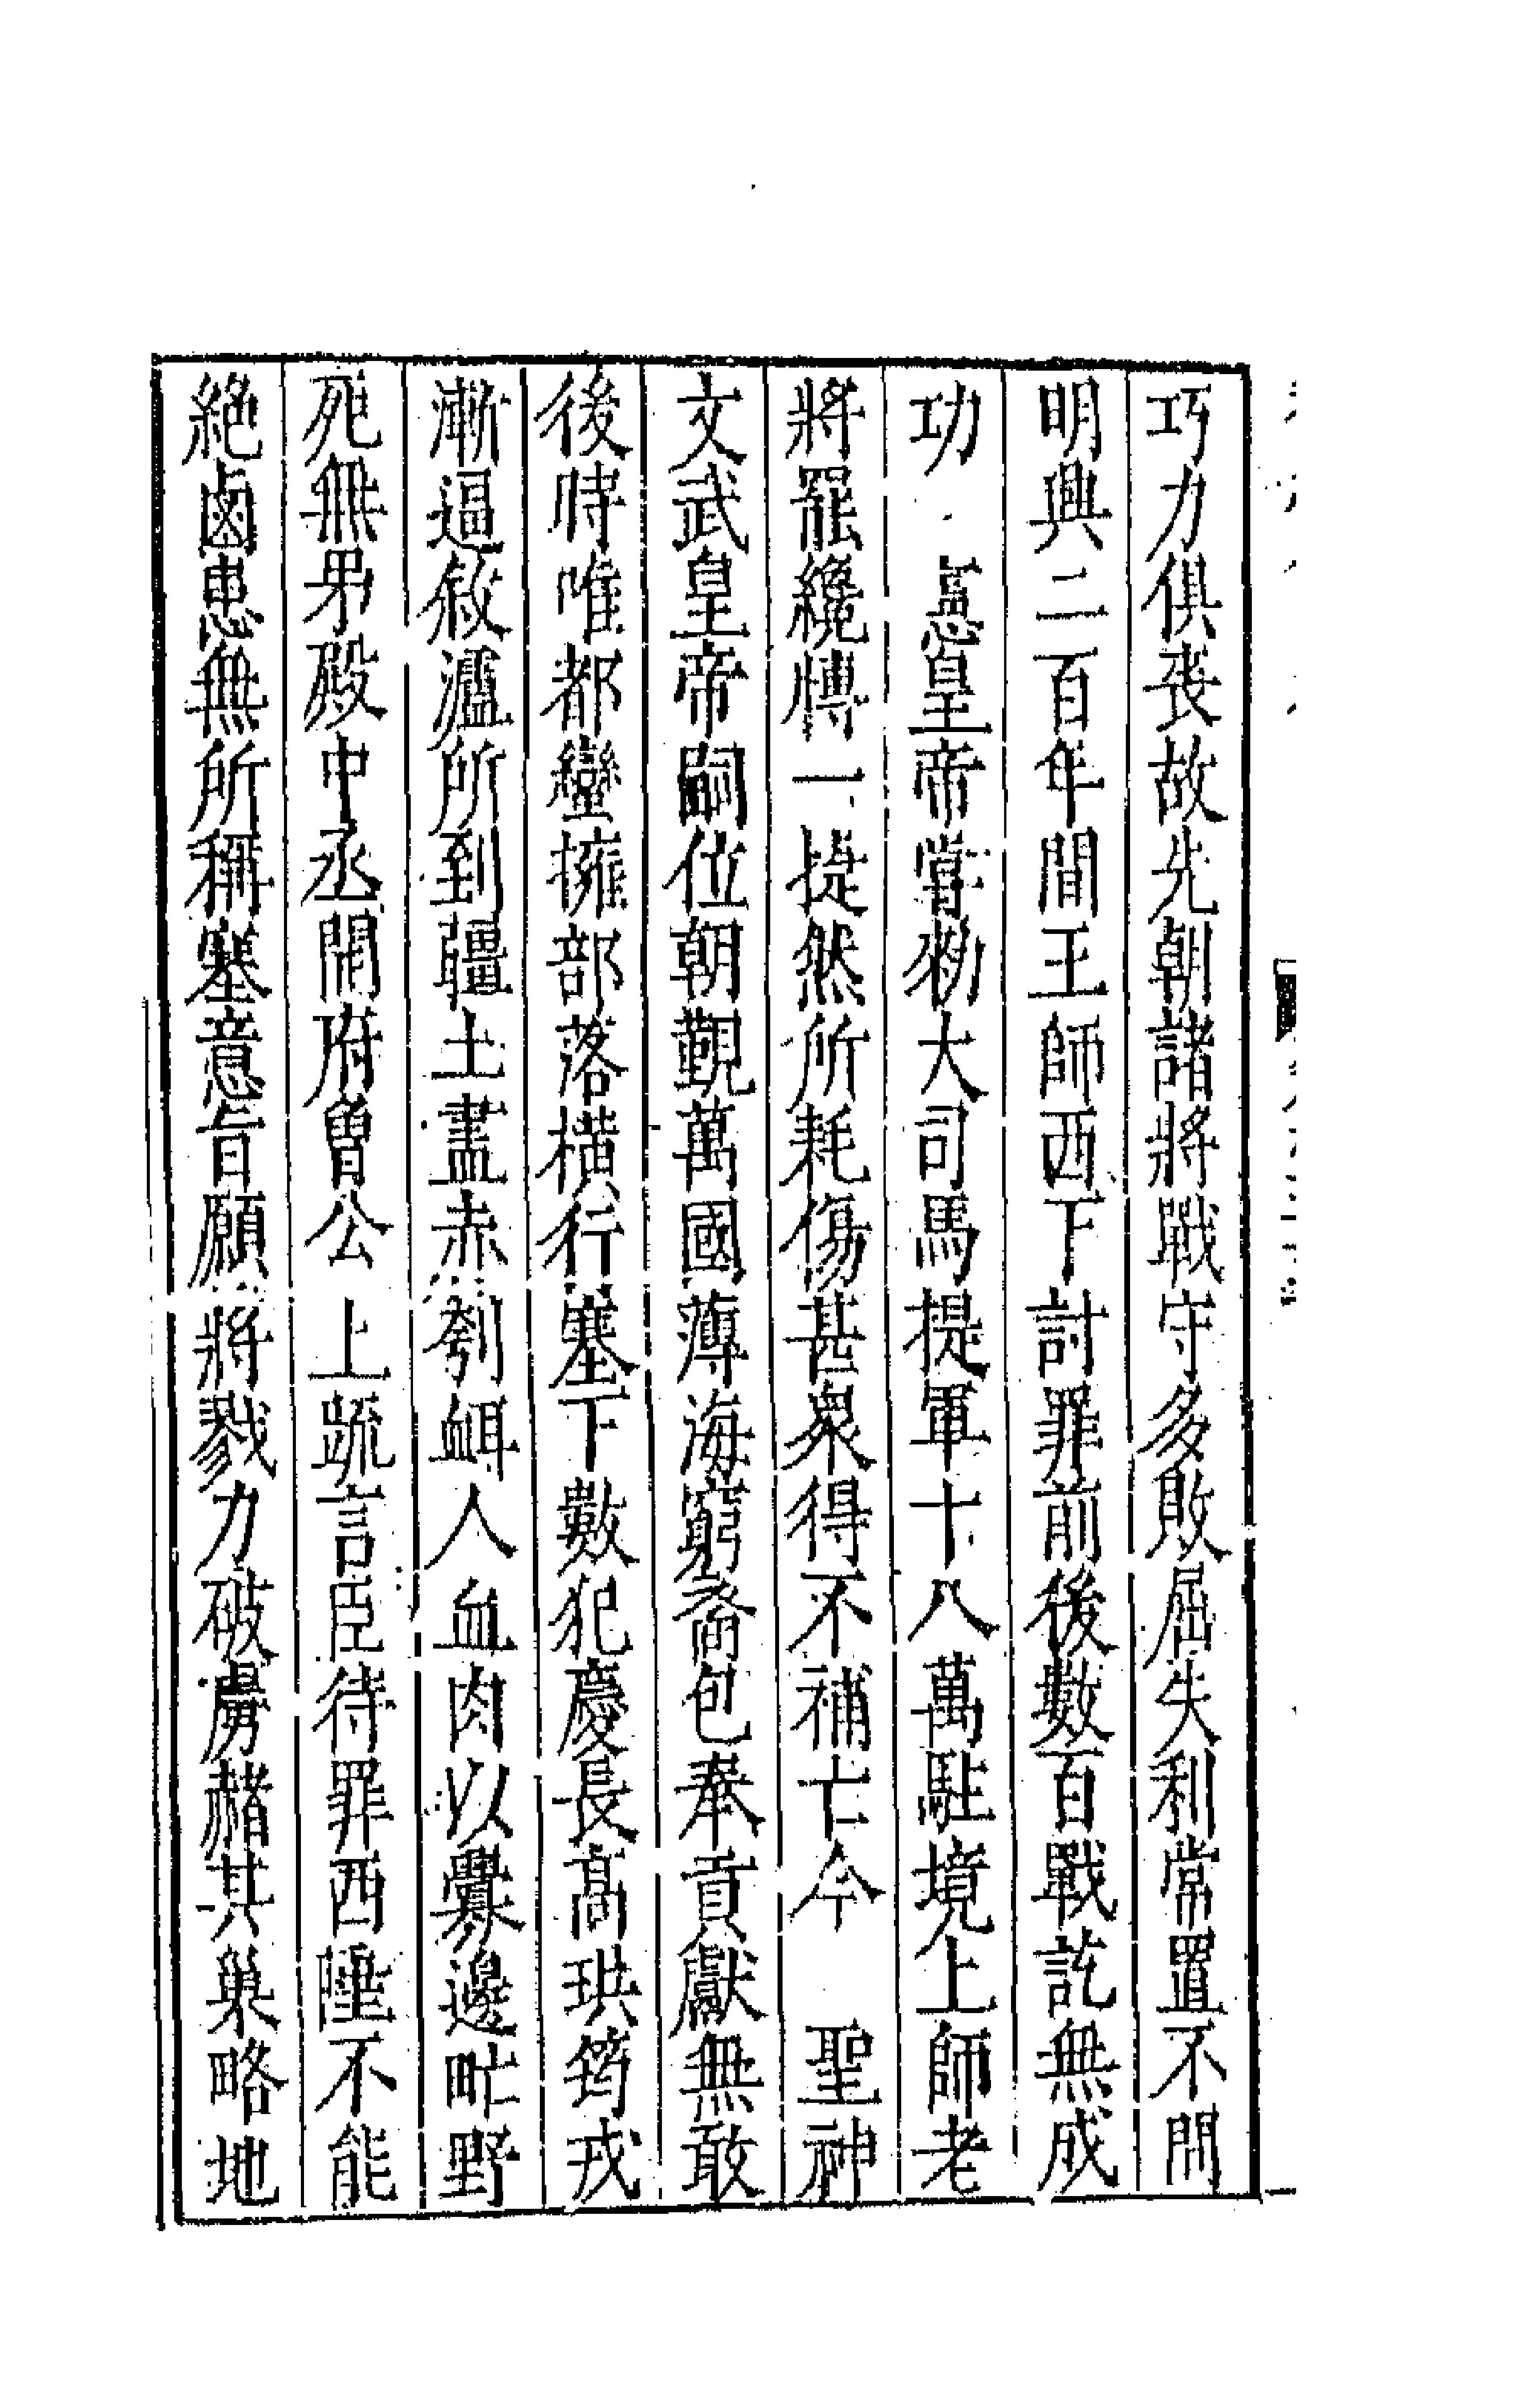 巧力俱喪故先朝諸將戰守多敗屈失利常置不問
明興二百年間王師西下討罪前後數百戰訖無成
功 憲皇帝嘗勑大司馬提軍十八萬駐境上師老
將罷纔慱一提然所耗傷甚衆得不補亡今 聖神
文武皇帝嗣位朝覲萬國薄海窮裔包奉貢獻無敢
後時唯都蠻擁部落橫行塞下數犯慶長高珙筠戎
漸逼敘瀘所到疆土盡赤刳衈人血肉以爨邊甿野
死無弔殿中丞開府曾公上疏言臣待罪西陲不能
絕鹵患無所稱塞意旨願將戮力破虜赭其巢略地